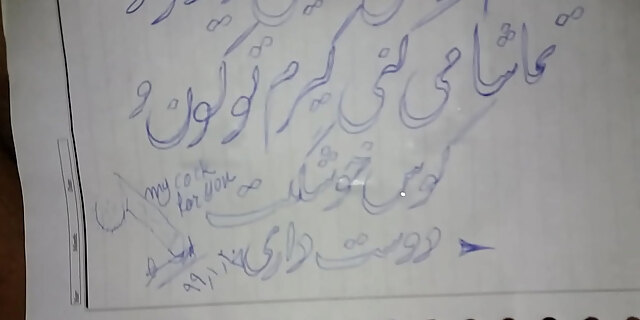 تماشا می کنی کیرم تو کون و
کوس خوشگلت
my cock
for you
دوست داری